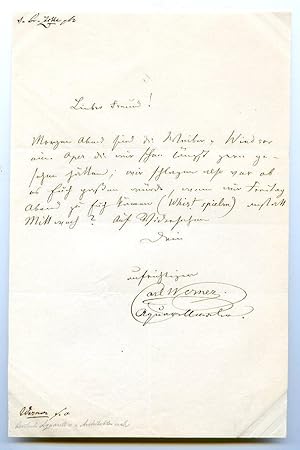 Lieber Freund!
Morgen Abend sind die Weiber v. Windsor
eine Oper die wir schon längst gern ge-
sehen hätten; wir schlagen also vor ob
es Euch passen würde, wenn wir Freitag
Abend zu Euch kommen (Whist spielen) anstatt
Mittwoch? Auf Wiedersehen
Dein
aufrichtiger
Carl Werner.
Aquarellmaler.
Werner